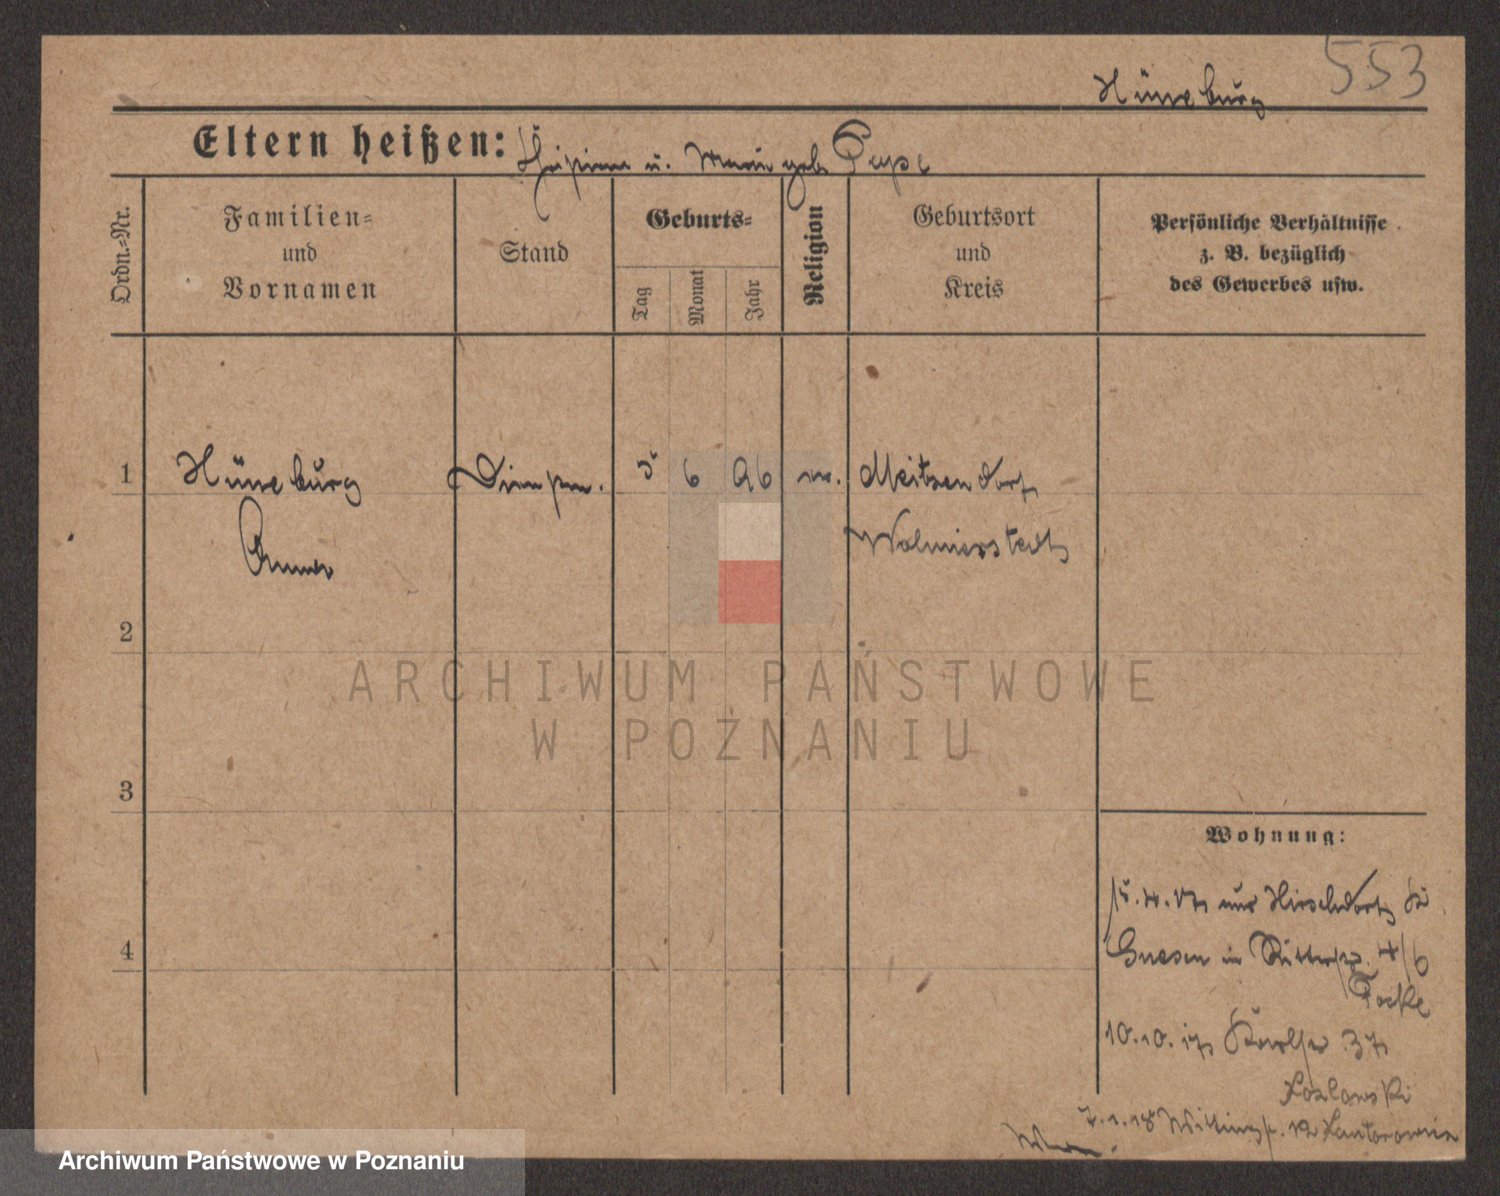 553
Hüneburg
Eltern heißen: u. Marie geb. Pape
Ordn.-Nr.
Familien-
und
Vornamen
Stand
Geburts-
Tag
Monat
Jahr
Religion
Geburtsort
und
Kreis
Persönliche Verhältnisse
z. B. bezüglich
des Gewerbes usw.
1
Hüneburg
Anna
5 6 96
Meitzendorf
Wolmirstedt
2
3
4
Wohnung:
aus Hirschdorf Kr
Gnesen in Ritterstr. 4/6
Focke
10.10.17 Karlstr 37
Kozlowski
7.1.18 Wittingstr. 12 Kantorowicz
ARCHIWUM PAŃSTWOWE
W POZNANIU
Archiwum Państwowe w Poznaniu